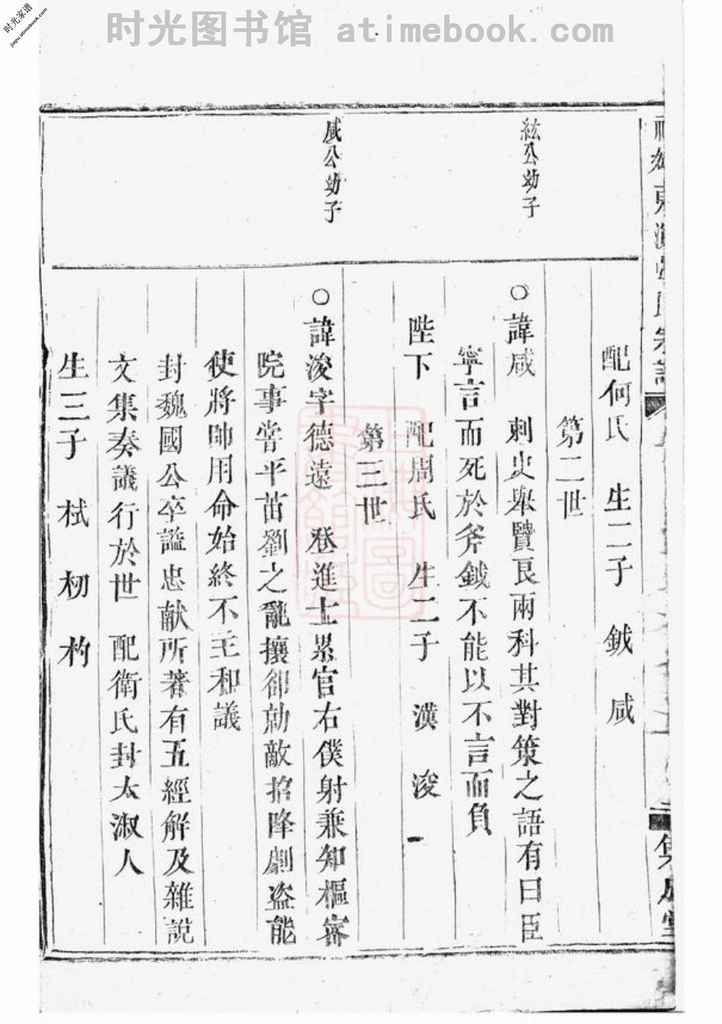 时光图书馆 atimebook.com
时光家谱
东海張氏宗譜
配何氏 生二子 鉞 咸
第二世
紘公幼子
○諱咸 刺史舉賢良兩科其對策之語有曰臣
寧言而死於斧鉞不能以不言而負
陛下 配周氏 生二子 潢 浚
第三世
咸公幼子
○諱浚字德遠 登進士累官右僕射兼知樞宻
院事甞平苗劉之亂攘卻勍敵招降劇盗能
使將帥用命始終不主和議
封魏國公卒謚忠献所著有五經解及雜説
文集奏議行於世 配衛氏封太淑人
生三子 栻 枬 杓